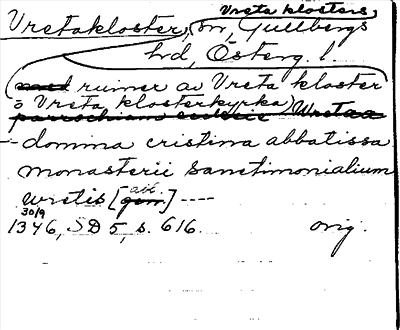 Vreta klosters
Vretakloster, sn, Gullbergs
hd, Österg. l.
med ruiner av Vreta kloster
o Vreta klosterkyrka)
parrochiam ecclesie Wretaa
– domina cristina abbatissa
monasterii sanctimonialium
wretis [gen. abl.] ----
30/9
1346, SD 5, s. 616. orig.